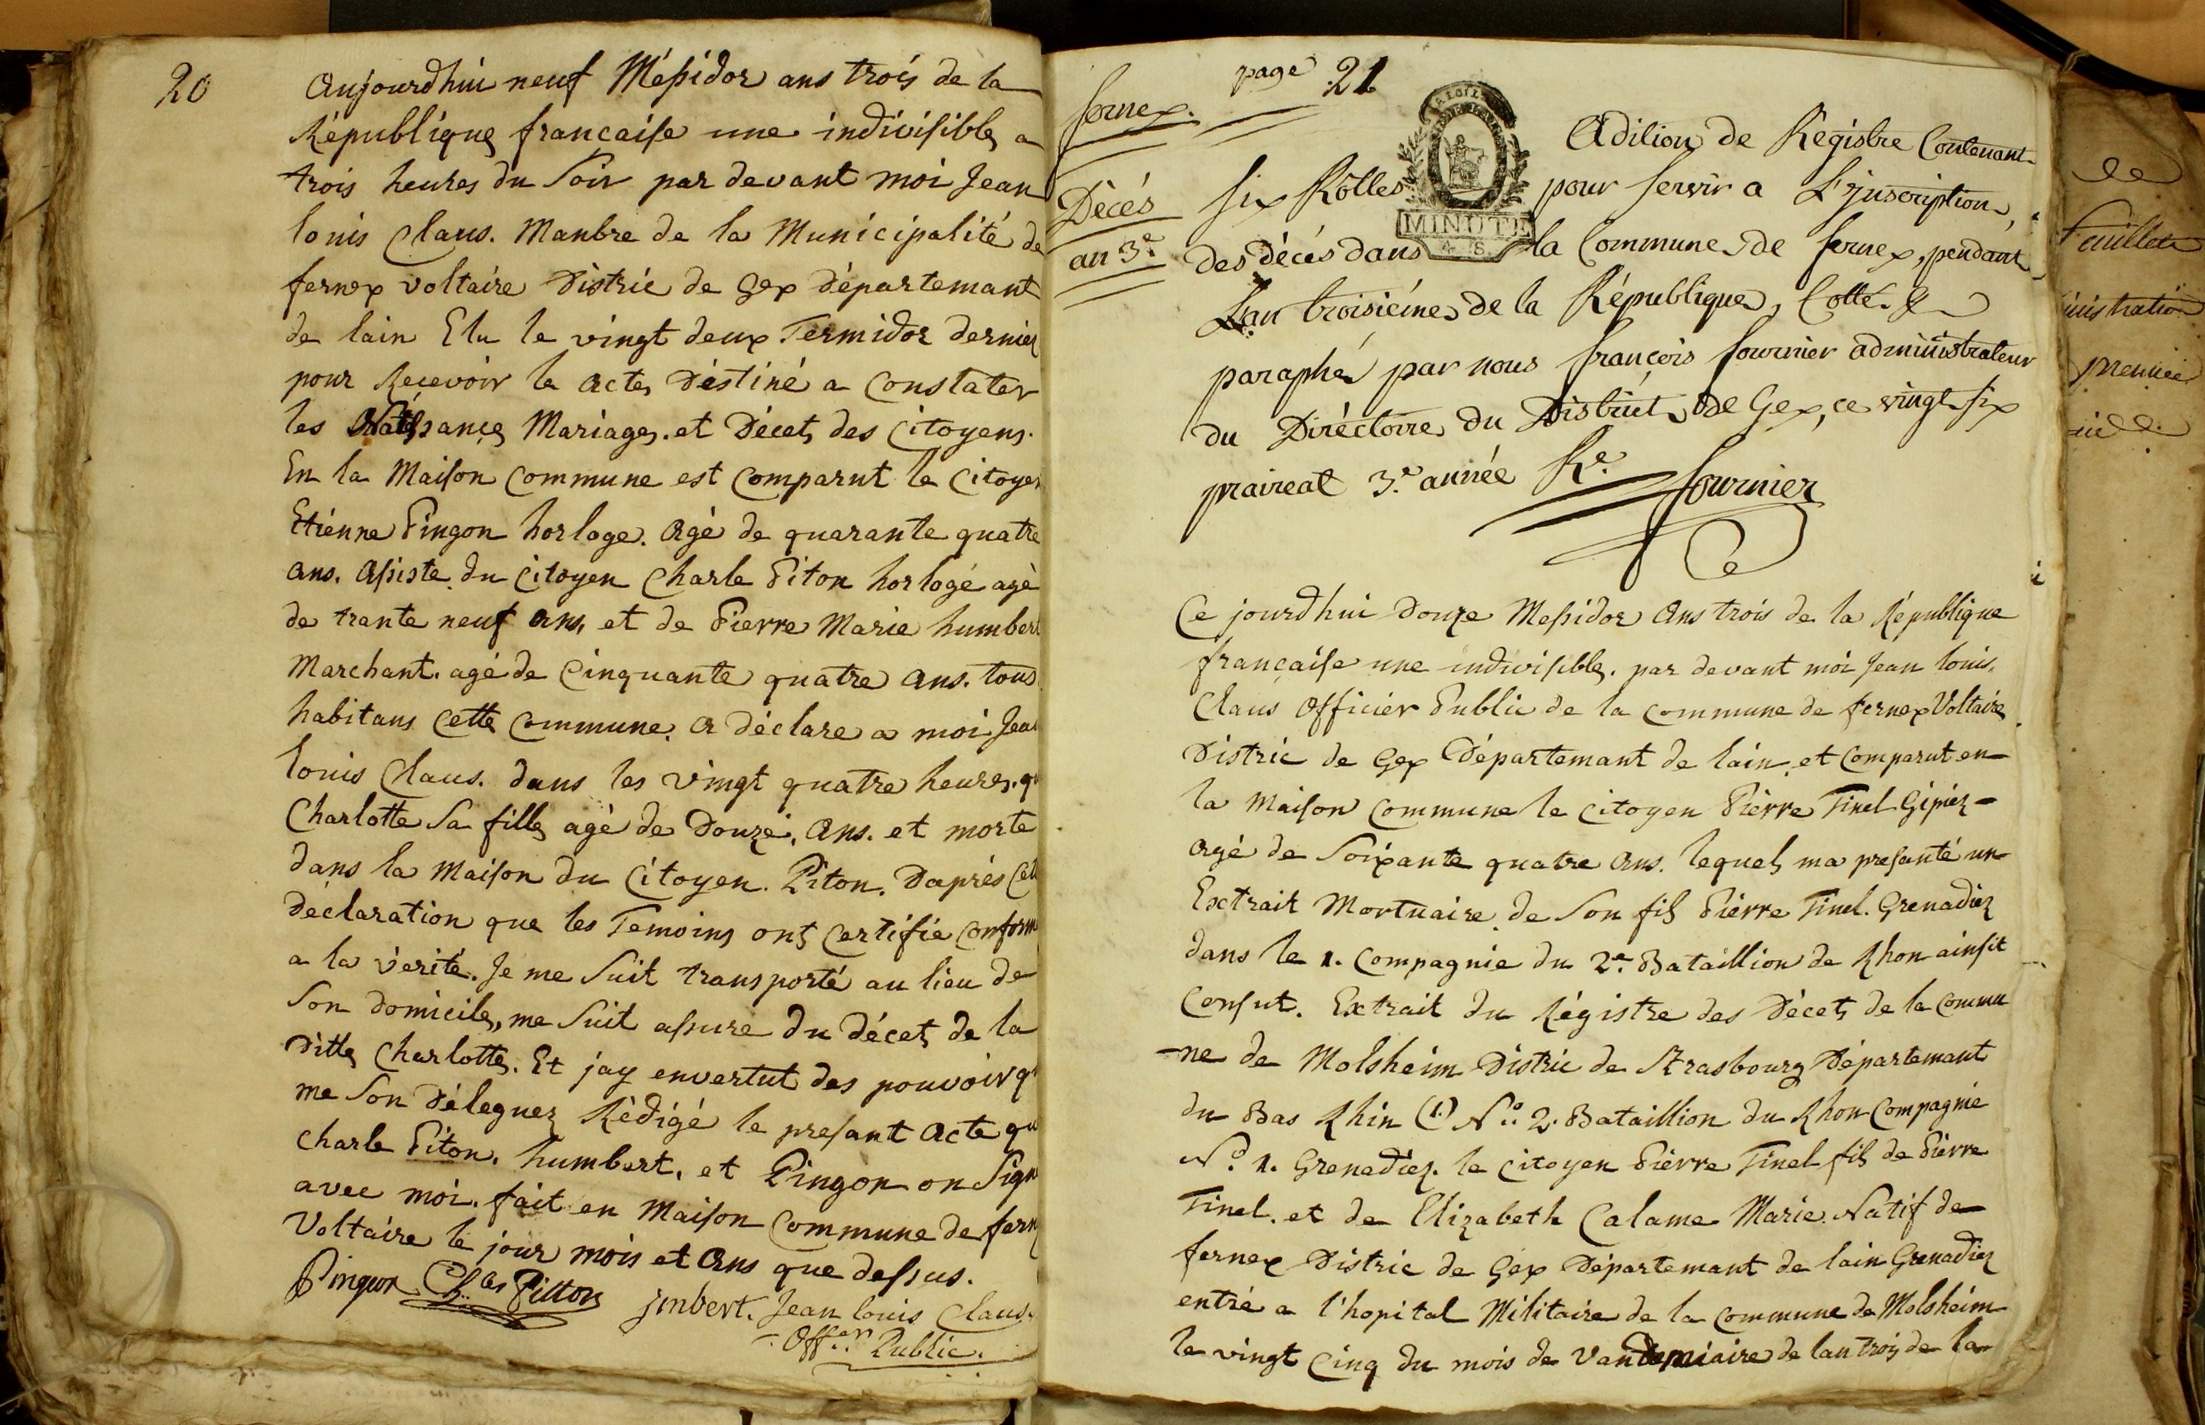 20
Aujourdhui neuf Méssidor ans trois de la
République francaise une indivisible a
trois heures du Soir par devant moi Jean
louis Claus. Manbre de la Municipalité de
fernex voltaire Distric de Gex Département
de lain Elu le vingt deux Termidor dernier
pour Recevoir le acte, Déstiné a Constater
les Naissançe Mariages. et Décet, des Citoyens.
En la Maison Commune est Comparut le Citoyen
Etiénne Pingon horloge. agé de quarante quatre
ans. assiste du Citoyen Charle Piton horlogé agé
de trante neuf ans, et de Pierre Marie humbert
Marchant. agé de Cinquante quatre ans. tous
habitans Cette Commune. a déclare a moi Jean
louis Claus. dans les vingt quatre heures. qu
Charlotte Sa fille agé de Douze. ans. et morte
dans la Maison du Citoyen. Piton. Daprès Cett
déclaration que les Temoins ont Certifie Conforme
a la vérité. Je me Suit transporté au lieu de
Son domicile, me Suit assure du décet de la
Ditte Charlotte. Et jay envertut des pouvoir q
me Son Déleguez Rédigé le presant acte qu
Charle Piton. humbert. et Pingon on Signe
avec moi. fait en Maison Commune de fern
Voltaire le jour mois et ans que dessus.
Pingeon Ch.les Pitton jmbert. Jean louis Claus.
Off.er Public.
page 21
fernex.
Décés
an 3.e
Adition de Régistre Contenant
six Rôlles pour servir a L'jnscription,
MINUTE
4 S
des décés dans la Commune de fernex, pendant
L'an troisiéme de la République, Cotté &
paraphé par nous françois fournier administrateur
du Diréctoire du District de Gex, ce vingt six
praireal 3.e année Re.
fournier
Ce jourdhui Douze Messidor Ans trois de la République
française une indivisible. par devant moi Jean louis,
Claus Officiér Public de la Commune de fernex Voltaire
Distric de Gex Département de lain, et Comparut en
la Maison Commune le Citoyen Piérre Tinel Gipiez
agé de Soixante quatre ans. lequel, ma presanté un
Extrait Mortuaire de Son fils Piérre Tinel. Grenadiez
dans le 1. Compagnie du 2.e Bataillion de Rhon ainsit
Consut. Extrait du Régistre des Décet, de la Commu
-ne de Molsheim Distric de Strasbourg Département
du Bas Rhin (1) N.o 2. Bataillion du Rhon Compagnie
N.o 1. Grenadiez. le Citoyen Piérre Tinel fils de Piérre
Tinel. et de Elizabeth Calame Marie. Natif de
fernex Distric de Gex Département de lain Grenadiez
entré a l'hopital Militaire de la Commune de Molsheim
le vingt Cinq du mois de Vandemiaire de lan trois de la
de
feuillets
inistration
premier